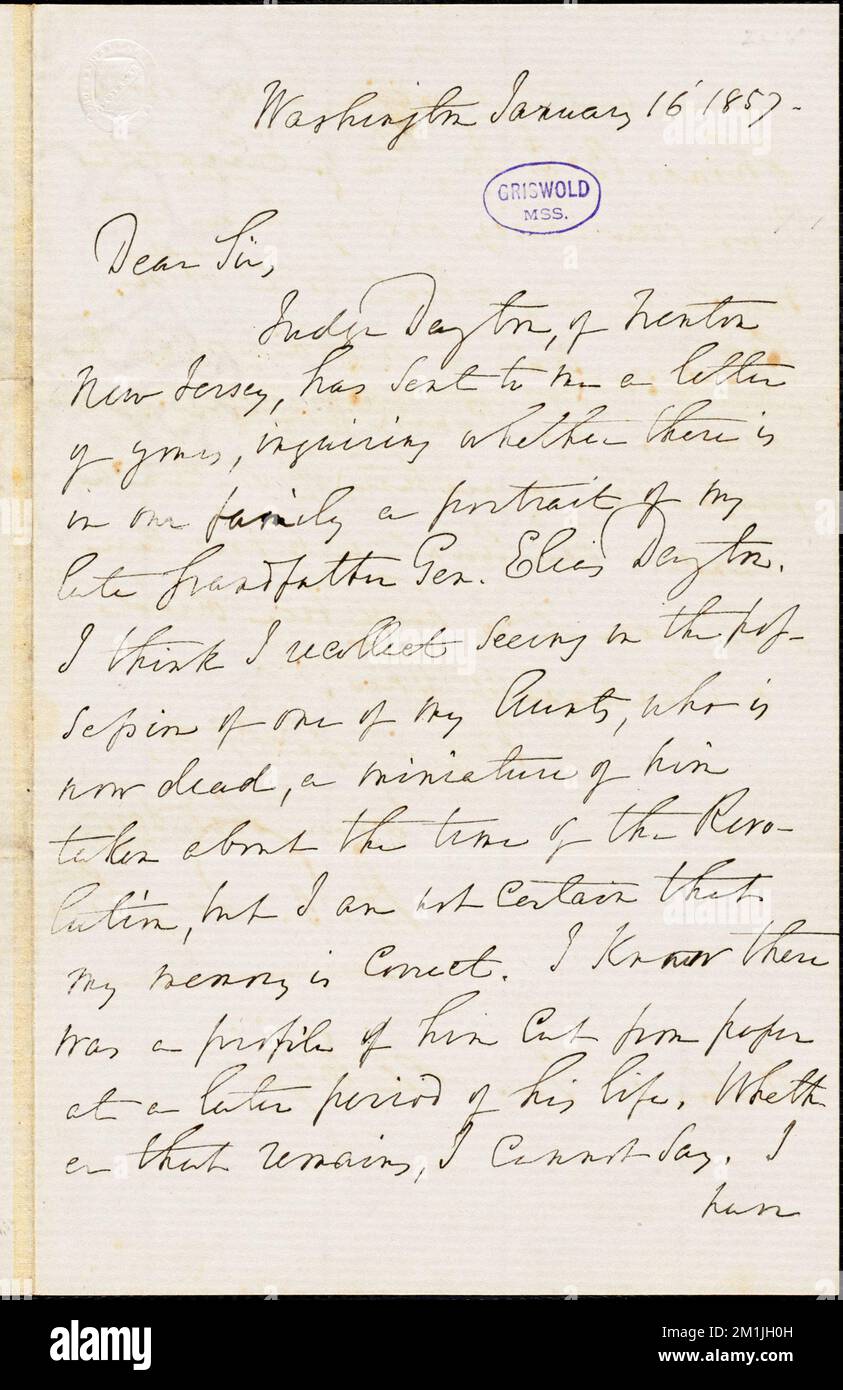 Washington January 16 1857.
GRISWOLD
MSS.
Dear Sir,
Judge Dayton, of Trenton
New Jersey, has sent to me a letter
of yours, inquiring whether there is
in our family a portrait of my
late Grandfather Gen. Elias Dayton.
I think I recollect seeing in the pos-
session of one of my Aunts, who is
now dead, a miniature of him
taken about the time of the Revo-
lution, but I am not certain that
my memory is correct. I know there
was a profile of him cut from paper
at a later period of his life. Wheth
er that remains, I cannot say. I
have
alamy
Image ID: 2M1JH0H
www.alamy.com